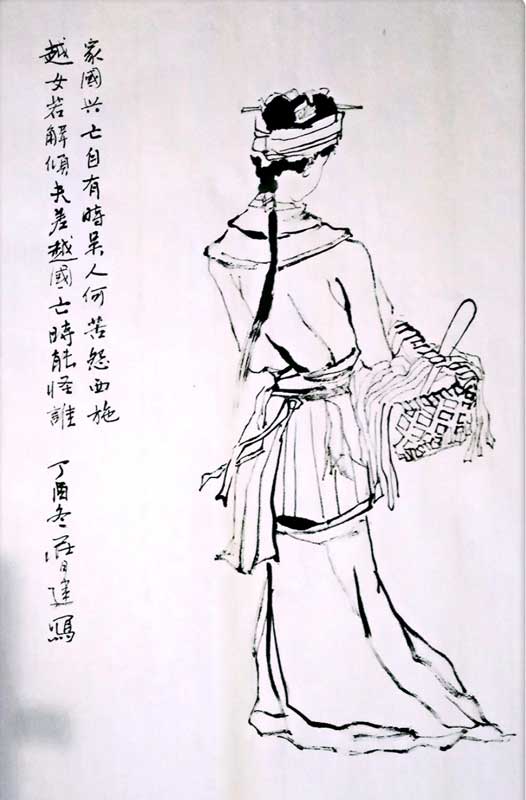 家國兴亡自有時吴人何苦怨西施
越女若解傾夫差越國亡時能怪誰
丁酉冬莊日建寫